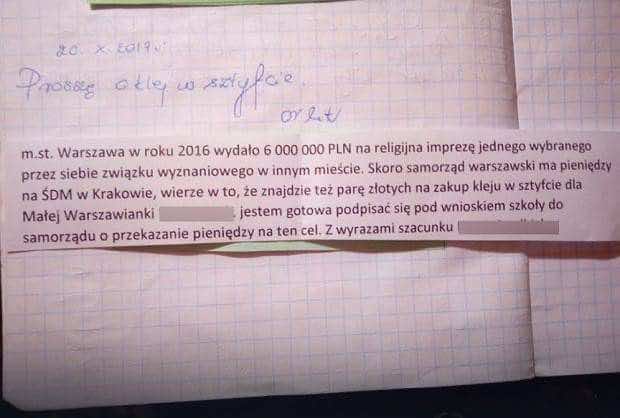 20. X. 2017r.
Proszę o klej w sztyfcie.
m.st. Warszawa w roku 2016 wydało 6 000 000 PLN na religijna imprezę jednego wybranego
przez siebie związku wyznaniowego w innym mieście. Skoro samorząd warszawski ma pieniędzy
na ŚDM w Krakowie, wierze w to, że znajdzie też parę złotych na zakup kleju w sztyfcie dla
Małej Warszawianki . jestem gotowa podpisać się pod wnioskiem szkoły do
samorządu o przekazanie pieniędzy na ten cel. Z wyrazami szacunku